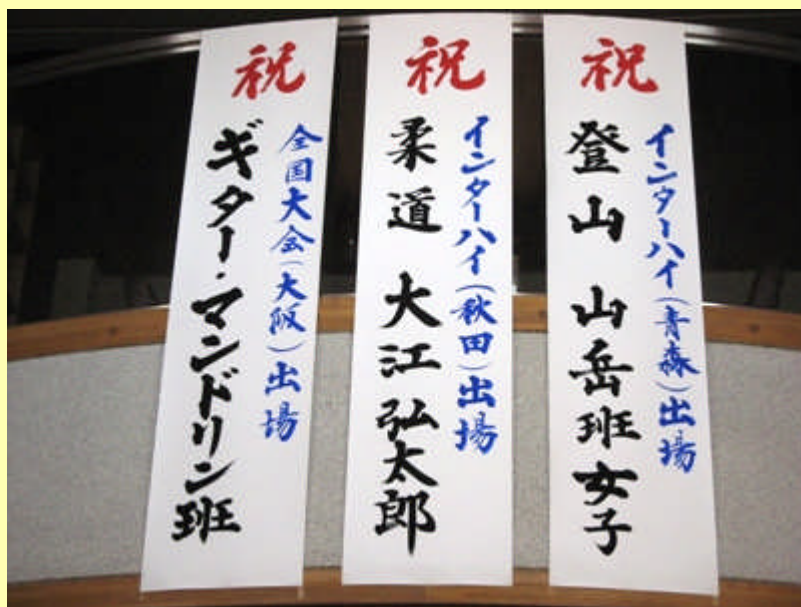 祝
インターハイ(青森)出場
登山 山岳班女子
祝
インターハイ(秋田)出場
柔道 大江弘太郎
祝
全国大会(大阪)出場
ギター・マンドリン班